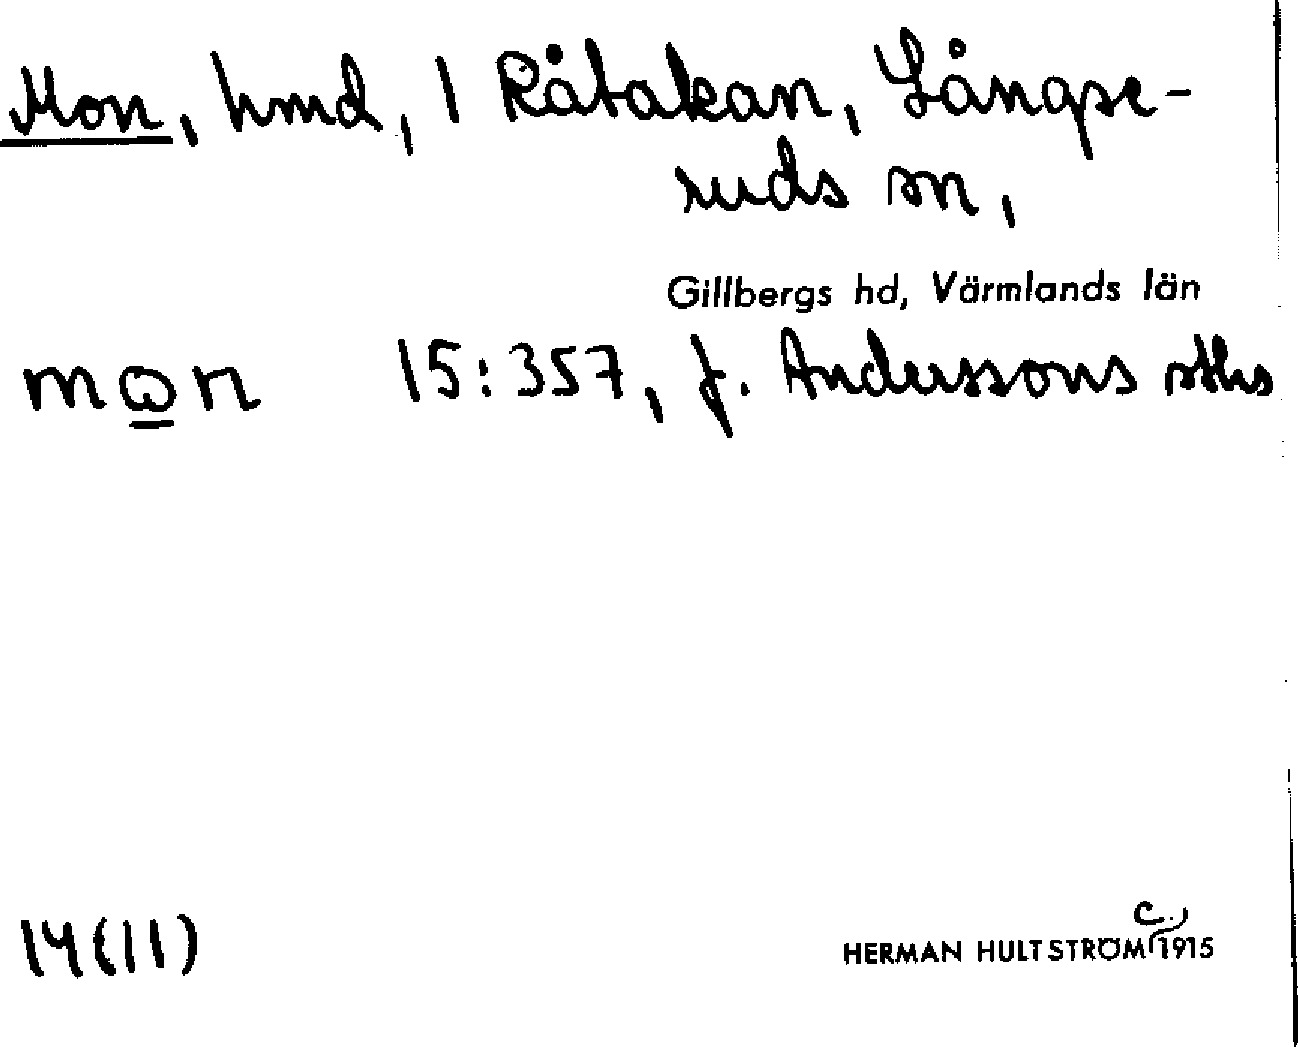 Mon, hmd, 1 Råtakan, Långse-
ruds sn,
Gillbergs hd, Värmlands län
mωn 15:357, f. Anderssons sths
14(11)
c.
HERMAN HULTSTRÖM 1915